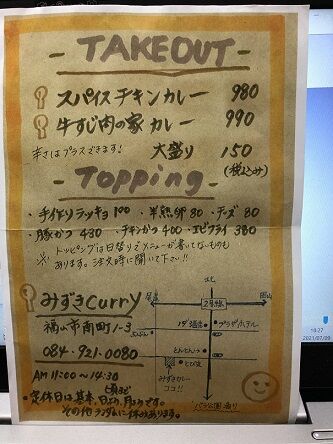 - TAKEOUT -
スパイスチキンカレー 980
牛すじ肉の家カレー 990
辛さはプラスできます! 大盛り 150
(税込み)
- Topping -
・手作りラッキョ 100 ・半熟卵 80 ・チーズ 80
・豚かつ 430 ・チキンかつ 400 ・エビフライ 380
※トッピングは日替りでメニューが書いてないものも
あります。注文時に聞いて下さい!!
みずきcurry
福山市南町1-3
084-921-0080
AM 11:00〜14:30
頃まで
・定休日は基本、日よう、月ようです。
その他ランダムに休みあります。
北
2号線
岡山
プラザホテル
とんとんつ
とび支
みずきカレー
ココ!!
バラ公園通り
10:27
2021/07/09